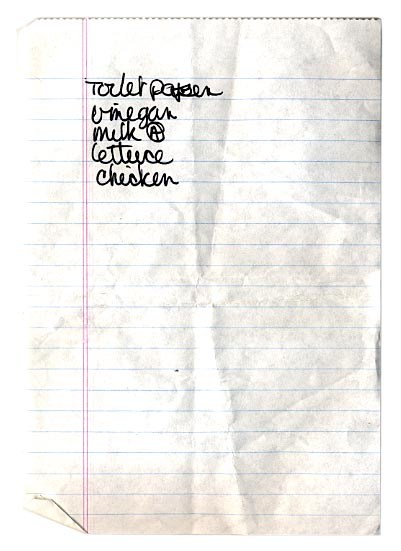 Toilet paper
vinegar
milk Ⓐ
lettuce
chicken